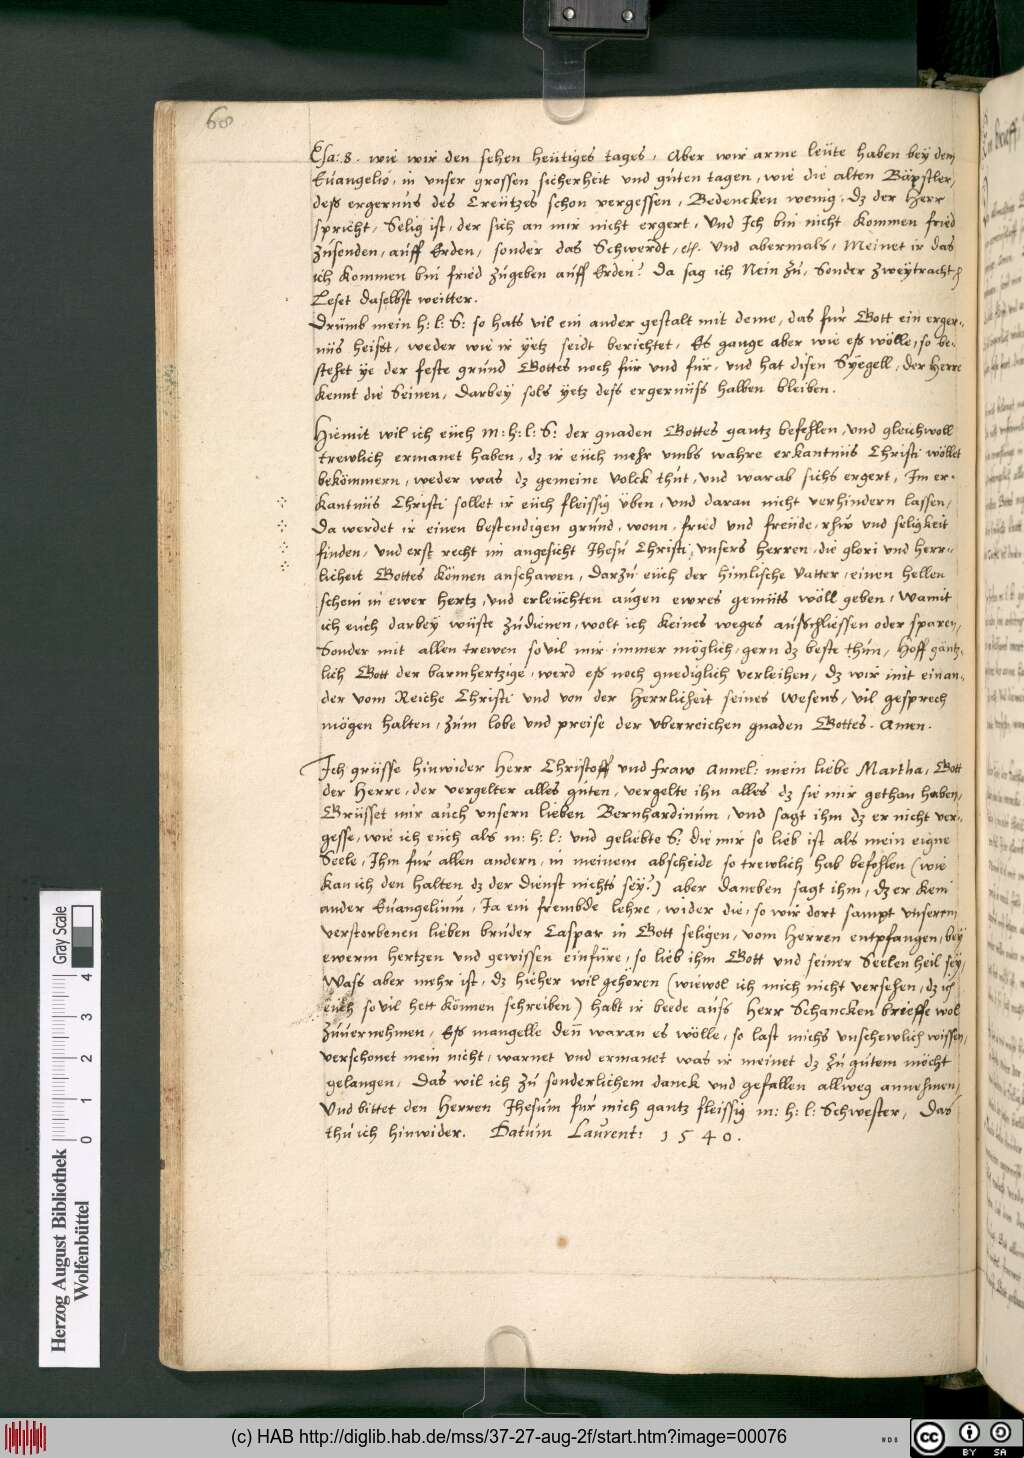 68
Esa: 8. wie wir den sehen heütiges tages, Aber wir arme leüte haben bey dem
Euangelio, in vnser grossen sicherheit vnd guten tagen, wie die alten Bäpstler,
deß ergernus des Creützes schon vergessen, Bedencken wenig, dz der Herr
spricht, Selig ist, der sich an mir nicht ergert, Vnd Ich bin nicht kommen fried
zusenden, auff Erden, sonder das Schwerdt, etc. Vnd abermals, Meinet ir das
ich kommen bin fried zugeben auff Erden? Da sag ich Nein zu, Sonder zweytracht
Leset daselbst weitter.
Drumb mein h: l: S: so hats vil ein ander gestalt mit deme, das fur Gott ein erger-
nus heisst, weder wie ir yetz seidt berichtet, Es gange aber wie eß wölle, so be-
stehet ye der feste grund Gottes noch für vnd für, vnd hat disen Syegell, der Herre
kennt die Seinen, Darbey sols yetz deß ergernuß halben bleiben.
Hiemit wil ich eüch m: h: l: S: der gnaden Gottes gantz befehlen, vnd gleichwoll
trewlich ermanet haben, dz ir eüch mehr vmbs wahre erkantnus Christi wöllet
bekömmern, weder was dz gemeine Volck thut, vnd warab sichs ergert, Im er-
kantnus Christi sollet ir eüch fleissig üben, vnd daran nicht verhindern lassen,
Da werdet ir einen bestendigen grund, wonn, fried vnd freüde, rhuw vnd seligkeit
finden, vnd erst recht im angesicht Jhesu Christi, vnsers Herren, die glori vnd herr-
licheit Gottes können anschawen, Darzu eüch der himlische Vatter, einen hellen
schein in ewer hertz, vnd erleüchten augen ewres gemüts wöll geben, Wamit
ich euch darbey wüste zudienen, wolt ich keines weges außschliessen oder sparen,
Sonder mit allen trewen so vil mir immer möglich, gern dz beste thun, Hoff gäntz-
lich Gott der barmhertzige, werd eß noch gnediglich verleihen, dz wir mit einan-
der vom Reiche Christi vnd von der Herrlicheit seines Wesens, vil gesprech
mögen halten, zum lobe vnd preise der vberreichen gnaden Gottes. Amen.
Ich grüsse hinwider Herr Christoff vnd fraw Annel: mein liebe Martha, Gott
der Herre, der vergelter alles guten, vergelte ihn alles dz sie mir gethan haben,
Grüsset mir auch vnsern lieben Bernhardinum, Vnd sagt ihm dz er nicht ver-
gesse, wie ich euch als m: h: l: vnd geliebte S: die mir so lieb ist als mein eigne
Seele, Ihm fur allen andern, in meinem abscheide so trewlich hab befohlen (wie
kan ich den halten dz der dienst nichts sey?) aber daneben sagt ihm, dz er kein
ander Euangelium, Ja ein frembde lehre, wider die, so wir dort sampt vnserem
verstorbenen lieben bruder Caspar in Gott seligen, vom Herren entpfangen, bey
ewerm hertzen vnd gewissen einfüre, so lieb ihm Gott vnd seiner Seelen heil sey,
Wass aber mehr ist, dz hieher wil gehören (wiewol ich mich nicht versehen, dz ich
eüch so vil hett können schreiben) habt ir beede auß Herr Schancken brieffe wol
zuuernehmen, Eß mangelle denn waran es wölle, so last michs vnschewlich wissen,
verschonet mein nicht, warnet vnd ermanet was ir meinet dz zu gutem möcht
gelangen, Das wil ich zu sonderlichem danck vnd gefallen allweg annehmen,
Vnd bittet den Herren Jhesum fur mich gantz fleissig m: h: l: Schwester, Das
thu ich hinwider. Datum Laurent: 1540.
Herzog August Bibliothek
Wolfenbüttel
Gray Scale
0 1 2 3 4
(c) HAB http://diglib.hab.de/mss/37-27-aug-2f/start.htm?image=00076
WDB
cc BY SA